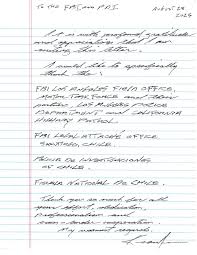 TO THE FBI AND PDI
AUGUST 28
2025
It is with profound gratitude
and appreciation that I am
writing this letter.
I would like to specifically
thank the:
FBI LOS ANGELES FIELD OFFICE,
MAJOR TASK FORCE AND THEIR
PARTNERS LOS ANGELES POLICE
DEPARTMENT AND CALIFORNIA
HIGHWAY PATROL.
FBI LEGAL ATTACHÉ OFFICE
SANTIAGO, CHILE.
POLICIA DE INVESTIGACIONES
DE CHILE.
FISCALIA NATIONAL DE CHILE.
Thank you so much for all
your effort, dedication,
professionalism and
cooperation.
My warmest regards,